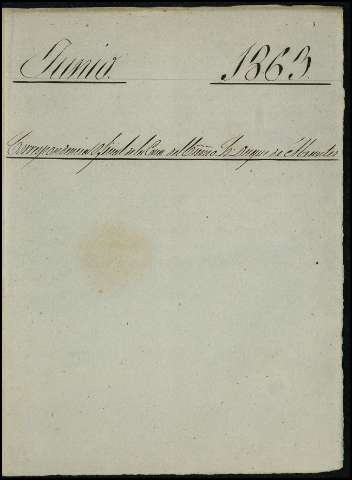 Junio. 1863.
Correspondencia oficial de la Casa del Exmo. Sr. Duque de